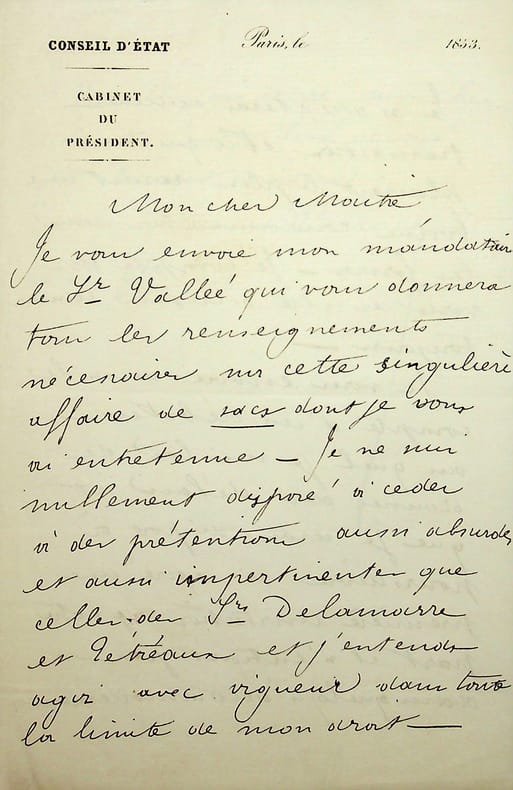 CONSEIL D'ÉTAT
Paris, le 1853.
CABINET
DU
PRÉSIDENT.
Mon cher Maitre
Je vous envoie mon mandataire
le Sr Valleé qui vous donnera
tous les renseignements
nécessaires sur cette singulière
affaire de sacs dont je vous
ai entretenue — Je ne suis
nullement disposé à ceder
à des prétentions aussi absurdes
et aussi impertinentes que
celles des Srs Delamarre
et Tétréaux et j'entends
agir avec vigueur dans toute
la limite de mon droit —